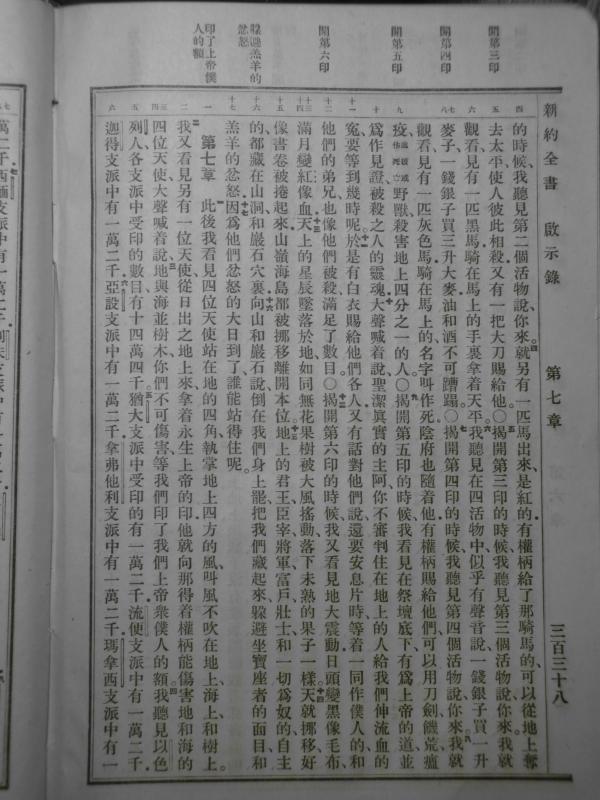 新約全書 啟示錄 第七章 三百三十八
開第三印
開第四印
開第五印
開第六印
躲避羔羊的
忿怒
印了上帝僕
人的額
的時候我聽見第二個活物說你來就另有一匹馬出來是紅的有權柄給了那騎馬的可以從地上奪
去太平使人彼此相殺又有一把大刀賜給他〇揭開第三印的時候我聽見第三個活物說你來我就
觀看見有一匹黑馬騎在馬上的手裏拿着天平我聽見在四活物中似乎有聲音說一錢銀子買一升
麥子一錢銀子買三升大麥油和酒不可蹧蹋〇揭開第四印的時候我聽見第四個活物說你來我就
觀看見有一匹灰色馬騎在馬上的名字叫作死陰府也隨着他有權柄賜給他們可以用刀劍饑荒瘟
疫或作死亡野獸殺害地上四分之一的人〇揭開第五印的時候我看見在祭壇底下有爲上帝的道並
爲作見證被殺之人的靈魂大聲喊着說聖潔真實的主阿你不審判住在地上的人給我們伸流血的
寃要等到幾時呢於是有白衣賜給他們各人又有話對他們說還要安息片時等着一同作僕人的和
他們的弟兄也像他們被殺滿足了數目〇揭開第六印的時候我又看見地大震動日頭變黑像毛布
滿月變紅像血天上的星辰墜落於地如同無花果樹被大風搖動落下未熟的果子一樣天就挪移好
像書卷被捲起來山嶺海島都被挪移離開本位地上的君王臣宰將軍富戶壯士和一切爲奴的自主
的都藏在山洞和巖石穴裏向山和巖石說倒在我們身上罷把我們藏起來躲避坐寶座者的面目和
羔羊的忿怒因爲他們忿怒的大日到了誰能站得住呢
第七章 此後我看見四位天使站在地的四角執掌地上四方的風叫風不吹在地上海上和樹上
我又看見另有一位天使從日出之地上來拿着永生上帝的印他就向那得着權柄能傷害地和海的
四位天使大聲喊着說地與海並樹木你們不可傷害等我們印了我們上帝衆僕人的額我聽見以色
列人各支派中受印的數目有十四萬四千猶大支派中受印的有一萬二千流便支派中有一萬二千
迦得支派中有一萬二千亞設支派中有一萬二千拿弗他利支派中有一萬二千瑪拿西支派中有一
萬二千西緬支派中有一萬二千利未支派中有一萬二